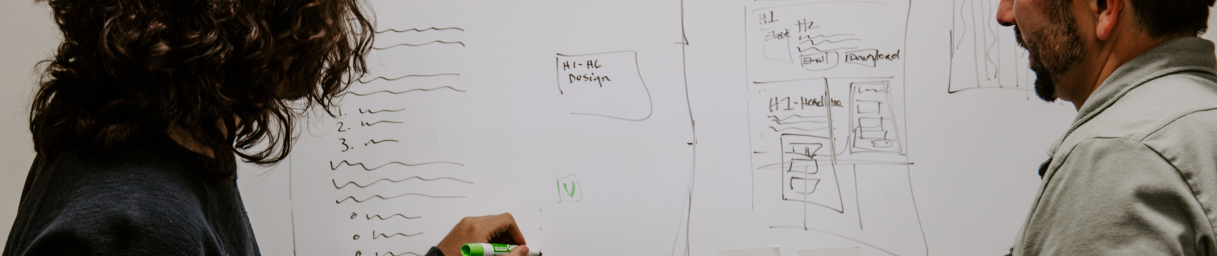 1.
2.
3.
H1-H6
Design
V
H1
H2
Email
Download
H1-Headline